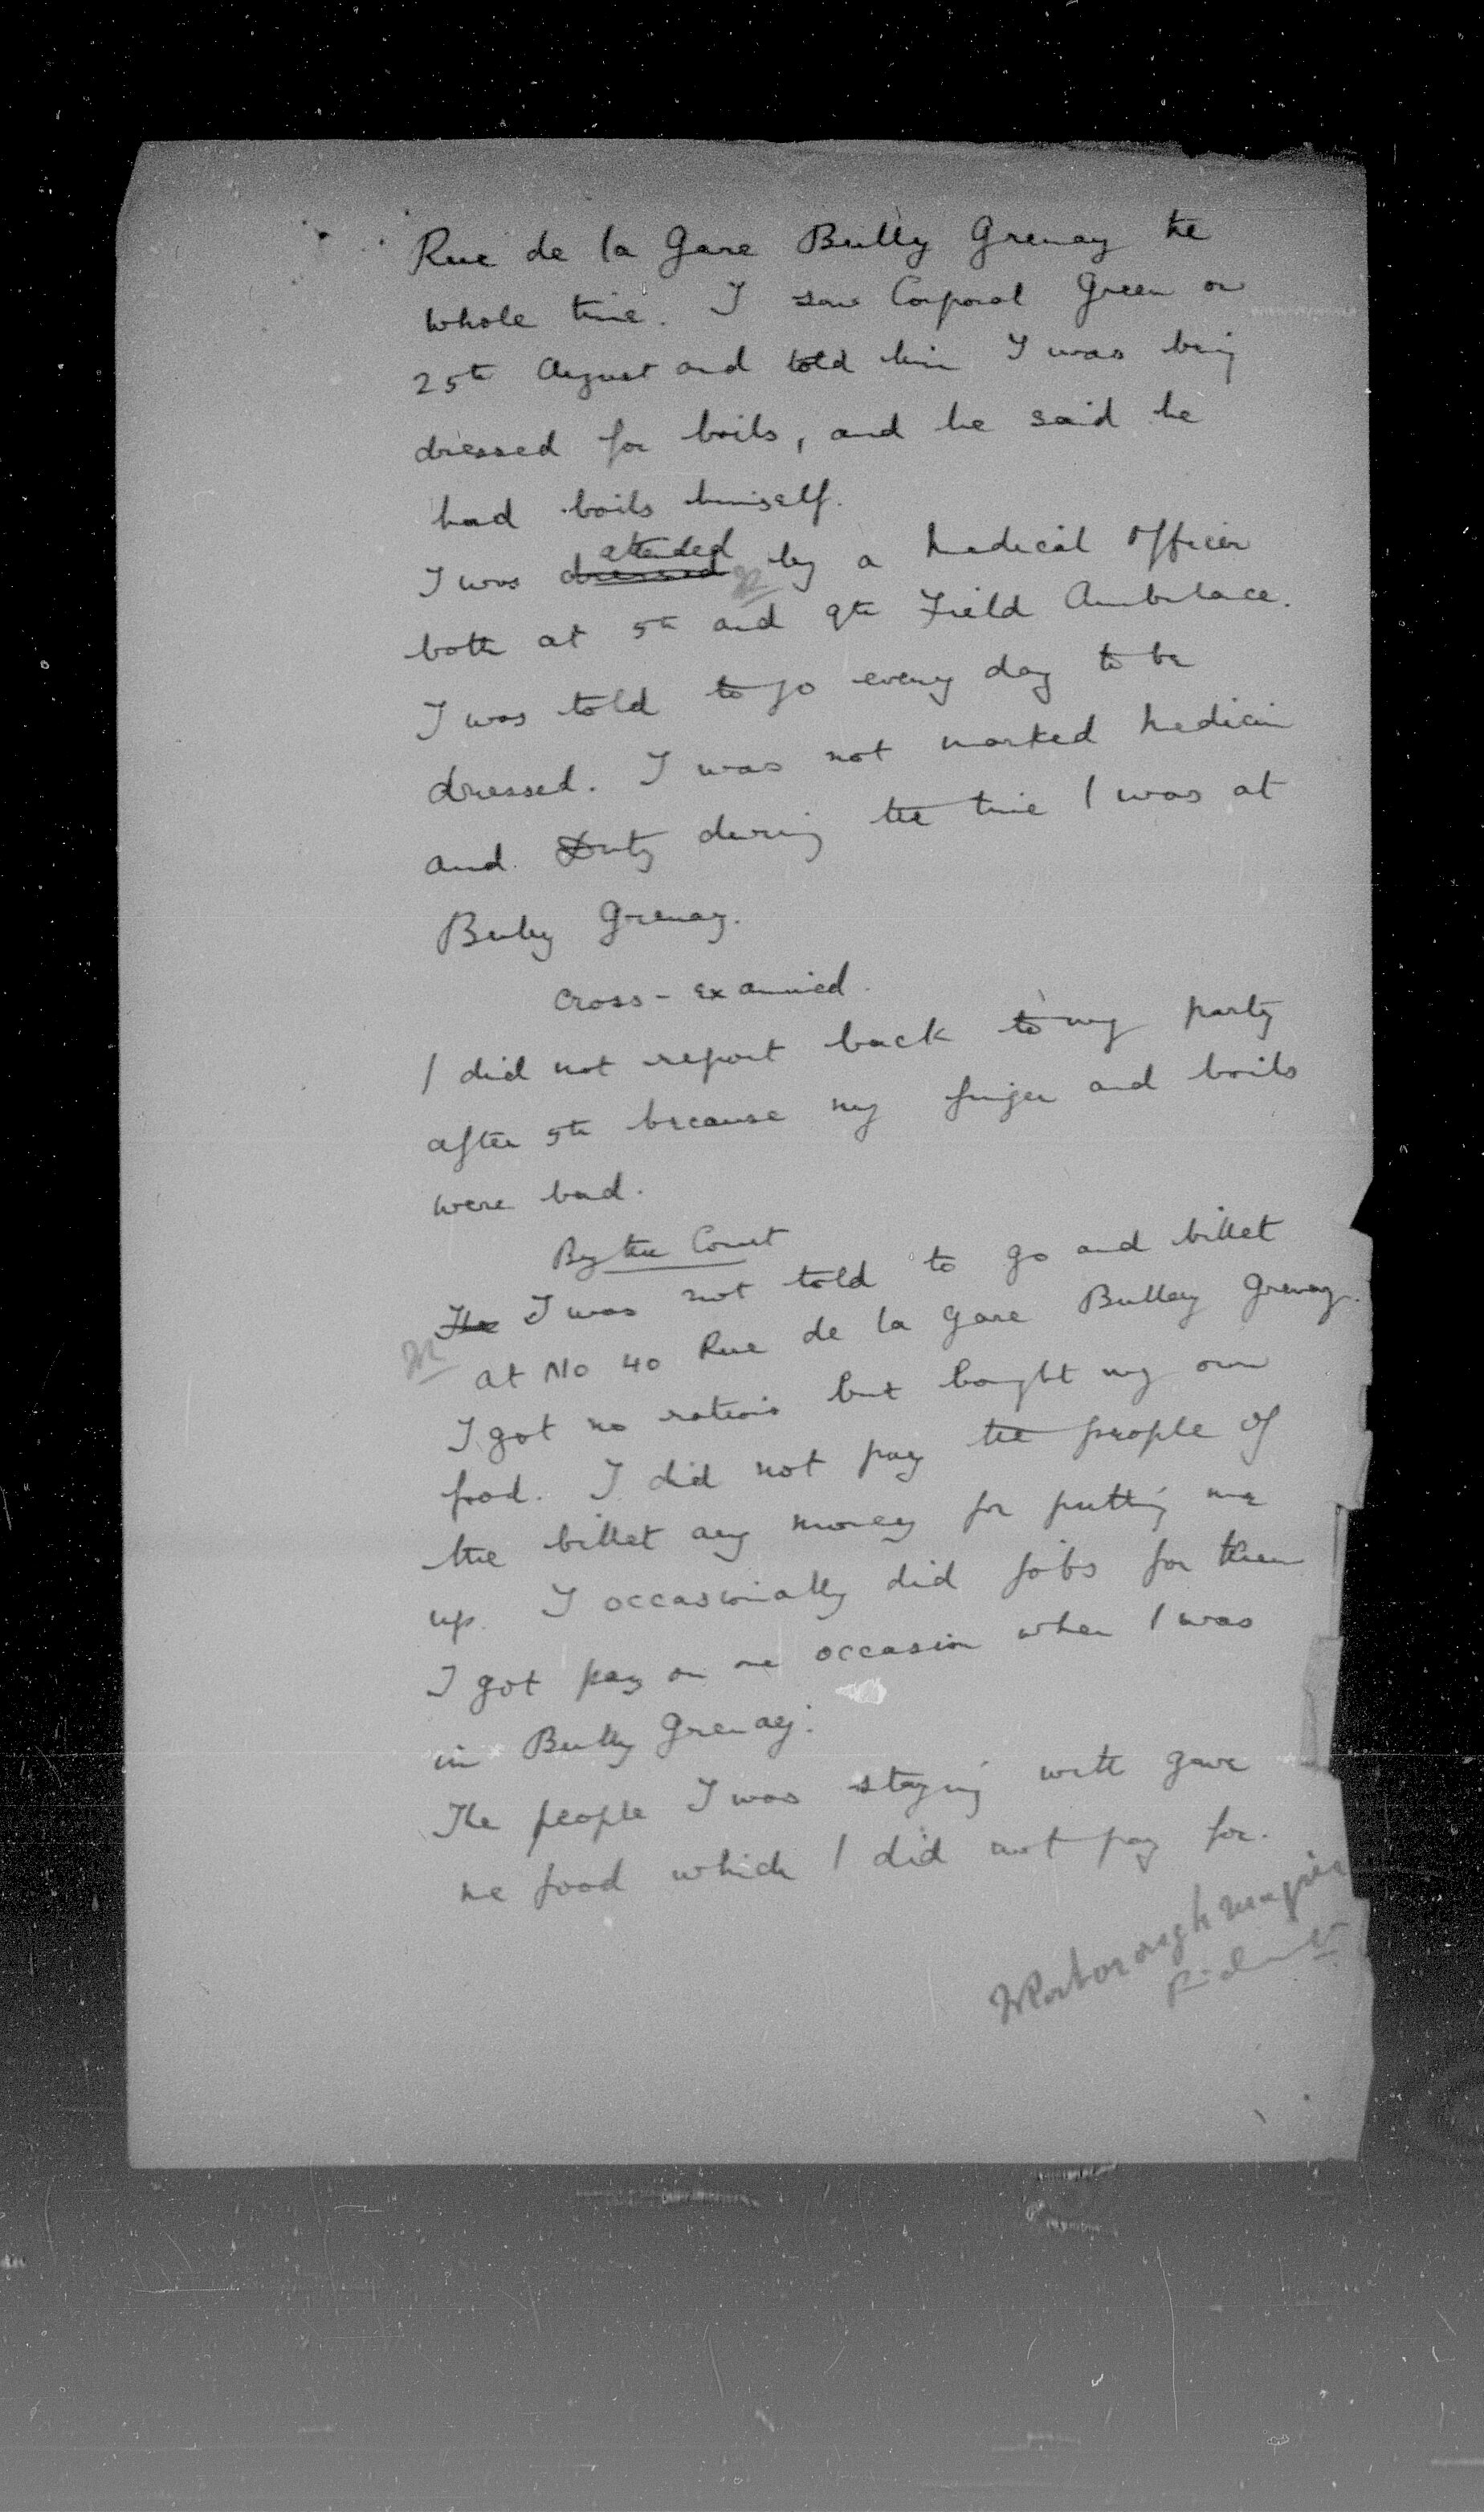 Rue de la Gare Bully Grenay the
whole time. I saw Corporal Green on
25th August and told him I was being
dressed for boils, and he said he
had boils himself.
attended
I was dressed by a Medical Officer
both at 5th and 9th Field Ambulance.
I was told to go every day to be
dressed. I was not marked Medicin
and Duty during the time I was at
Bully Grenay.
Cross-examined.
I did not report back to my party
after 5th because my finger and boils
were bad.
By the Court
The I was not told to go and billet
at No 40 Rue de la Gare Bulley Grenay.
I got no rations but bought my own
food. I did not pay the people of
the billet any money for putting me
up. I occasionally did jobs for them
I got pay on one occasion when I was
in Bully Grenay.
The people I was staying with gave
me food which I did not pay for.